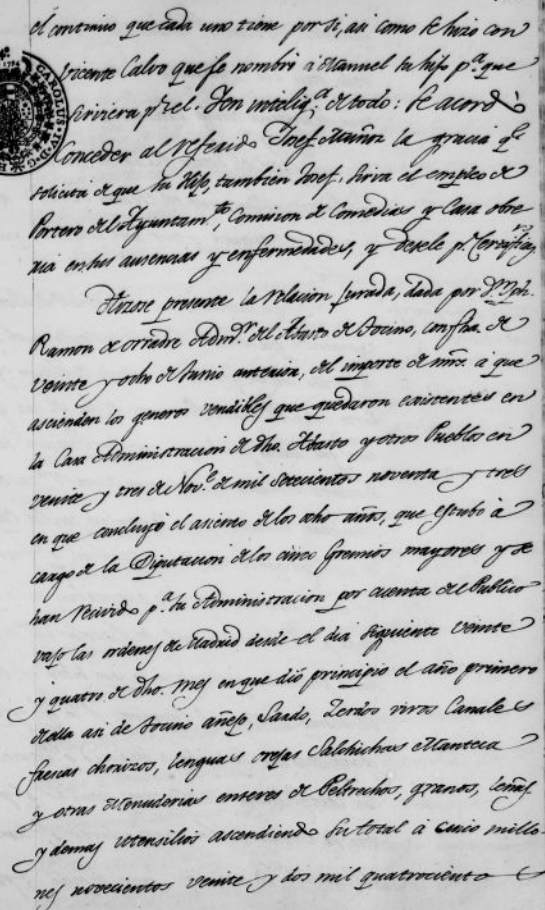 el continuo que cada uno tiene por si, asi como se hizo con
Vicente Calvo que se nombró á Manuel su hijo p.ª que
sirviera p.r el. Con intelig.ª de todo: Se acordó
Conceder al referido Josef Muñoz la gracia q.e
solicita de que su Hijo, tambien Josef, sirva el empleo de
Portero del Ayuntam.to, Comision de Comedias y Casa
en sus ausencias y enfermedades, y desele p.r Certifi.on
Hizose presente la relacion jurada, dada por D.n Jph.
Ramon de Adm.or del Abasto de Tocino, con fha. de
veinte y ocho de Junio anterior, del importe de mrs. á que
ascienden los generos vendibles que quedaron existentes en
la Casa Administracion de dho. Abasto y otros Pueblos en
veinte y tres de Nov.e de mil setecientos noventa y tres
en que concluyó el asiento de los ocho años, que estubo á
cargo de la Diputacion de los cinco Gremios mayores y se
han recivido p.ª su Administracion por cuenta del Publico
vajo las ordenes de Madrid desde el dia siguiente veinte
y quatro de dho. mes en que dió principio el año primero
de ella asi de tocino añejo, Saldo, Zerdos vivos Canales
frescas chorizos, lenguas orejas Salchichas Manteca
y otras Menudencias enteres de Peltrechos, granos, leñas
y demas utensilios ascendiendo su total á cinco millo-
nes novecientos veinte y dos mil quatrociento
CAROLUS